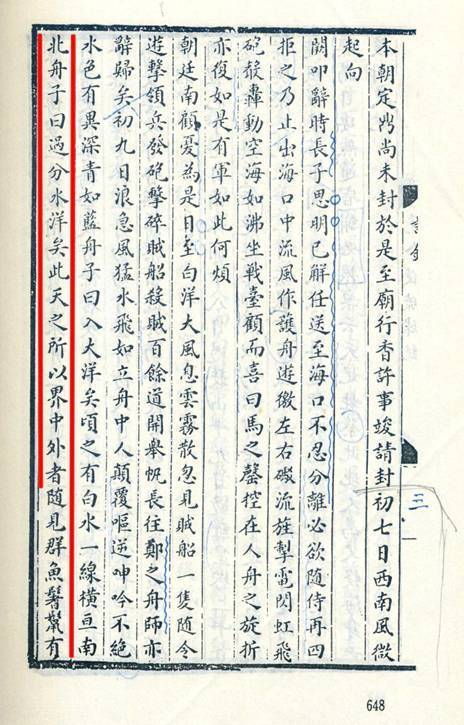 本朝定鼎尚未封於是至廟行香許事竣請封初七日西南風微
起向
闕叩辭時長子思明已解任送至海口不忍分離必欲隨侍再四
拒之乃止出海口中流風作護舟遊徼左右礮流旌掣電閃虹飛
砲聲轟動空海如沸坐戰臺顧而喜曰馬之罄控在人舟之旋折
亦復如是有軍如此何煩
朝廷南顧憂為是日至白洋大風息雲霧散忽見賊船一隻隨令
遊擊領兵發砲擊碎賊船殺賊百餘道開舉帆長往鄭之舟師亦
辭歸矣初九日浪急風猛水飛如立舟中人顛覆嘔逆呻吟不絕
水色有異深青如藍舟子曰入大洋矣頃之有白水一線橫亘南
北舟子曰過分水洋矣此天之所以界中外者隨見群魚鬐鬣有
三
648